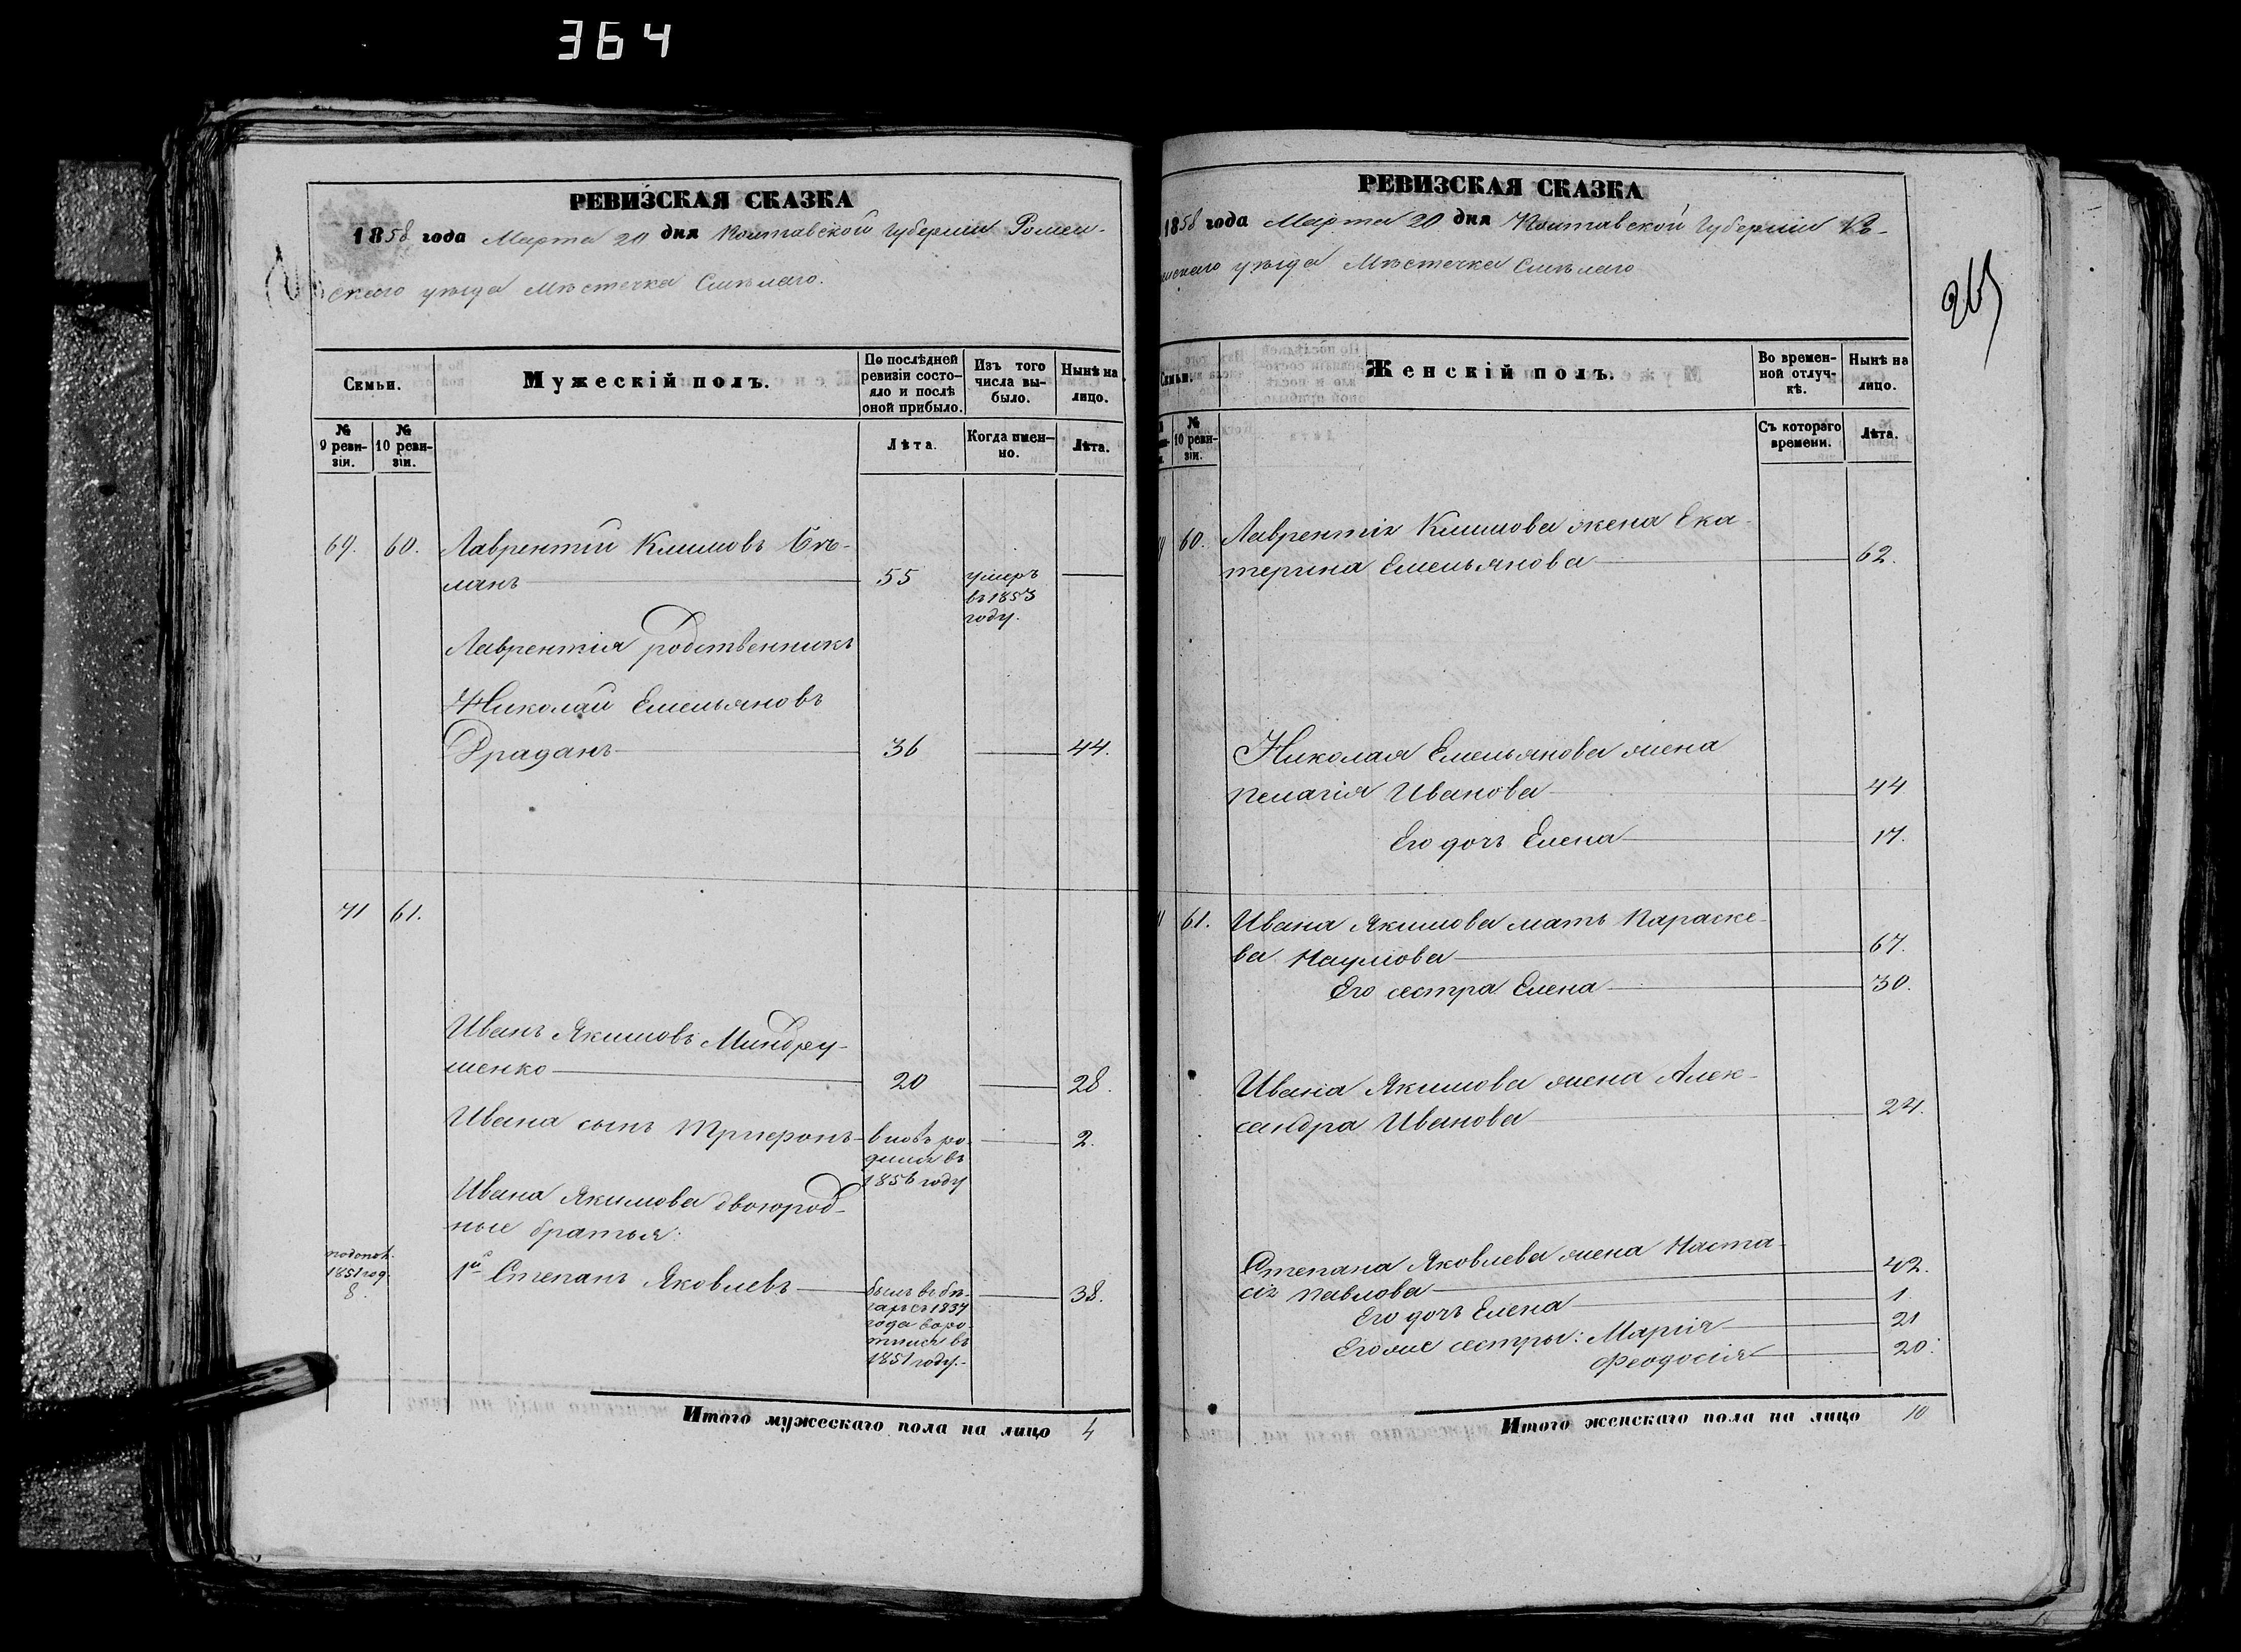 364
РЕВИЗСКАЯ СКАЗКА
1858 года Марта 20 дня Полтавской Губернии Ромен-
скаго уѣзда Мѣстечка Смѣлаго.
Семьи.
Мужескій полъ.
По послѣдней ревизіи состояло и послѣ оной прибыло.
Изъ того числа выбыло.
Нынѣ на лицо.
№ 9 ревизіи.
№ 10 ревизіи.
Лѣта.
Когда именно.
Лѣта.
69. 60. Лаврентій Климовъ Бѣ-
ланъ 55 умеръ
въ 1853
году.
Лаврентія родственникъ
Николай Емельяновъ
Драданъ 36 44.
71 61.
Иванъ Якимовъ Миндру-
шенко 20 28.
Ивана сынъ Трифонъ вновь ро- 2.
дился въ
1856 году
Ивана Якимова двоюрод-
ные братья:
по допол.
1851 год.
8.
1й Степанъ Яковлевъ былъ въ бѣ- 38.
гахъ съ 1837
года воро-
тился въ
1851 году.
Итого мужескаго пола на лицо 4
РЕВИЗСКАЯ СКАЗКА
1858 года Марта 20 дня Полтавской Губерніи
уѣзда Мѣстечка Смѣлаго
265
Семьи.
Женскій полъ.
Во временной отлучкѣ.
Нынѣ на лицо.
№ 10 ревизіи.
Съ котораго времени.
Лѣта.
60. Лаврентія Климова жена Ека-
терина Емельянова 62.
Николая Емельянова жена
Пелагія Иванова 44
Его дочь Елена 17.
61. Ивана Якимова мать Параске-
ва Наумова 67.
Его сестра Елена 30.
Ивана Якимова жена Алек-
сандра Иванова 24.
Степана Яковлева жена Наста-
сія Павлова 42.
Его дочь Елена 1.
Его же сестры: Марія 21
Феодосія 20.
Итого женскаго пола на лицо 10